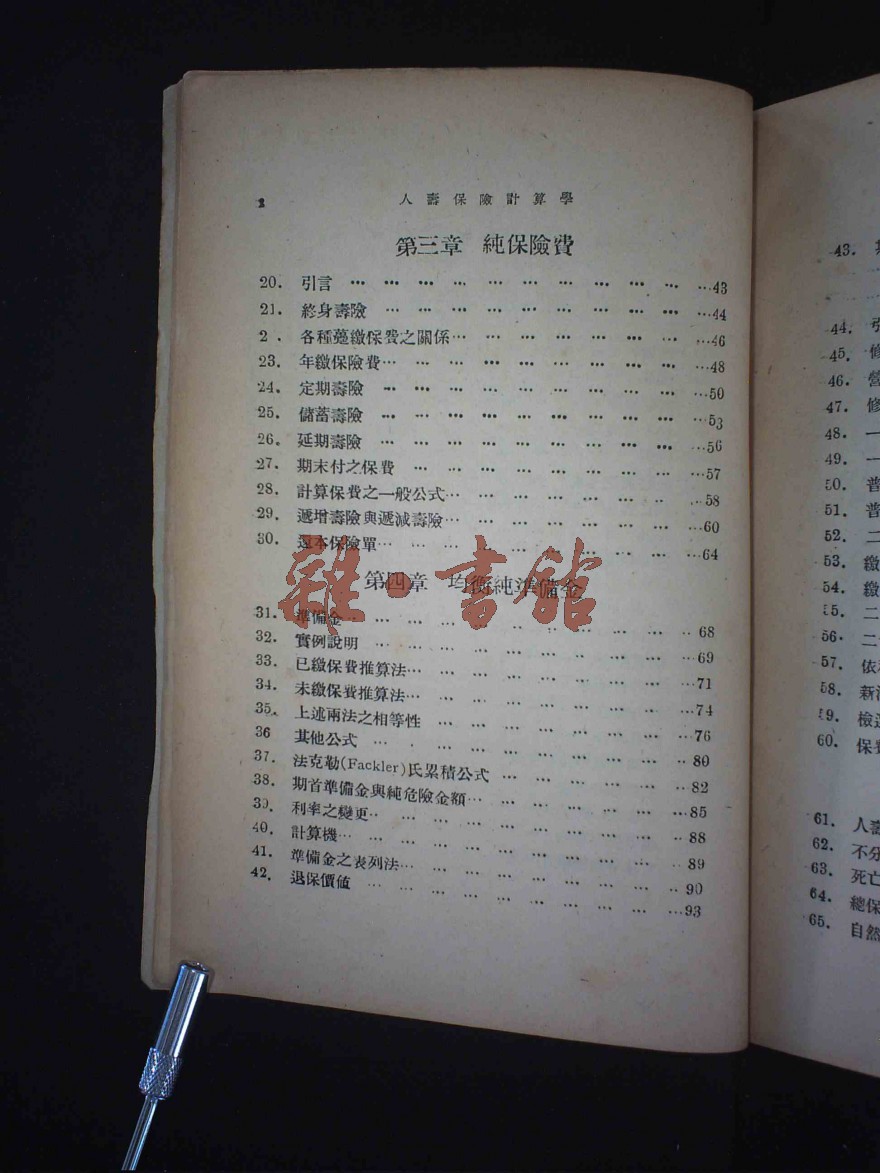 2 人壽保險計算學
第三章 純保險費
20. 引言 … … … … … … … … … … …43
21. 終身壽險 … … … … … … … … … …44
2 . 各種躉繳保費之關係… … … … … … … …46
23. 年繳保險費… … … … … … … … … …48
24. 定期壽險 … … … … … … … … … …50
25. 儲蓄壽險 … … … … … … … … … …53
26. 延期壽險 … … … … … … … … … …56
27. 期末付之保費 … … … … … … … … …57
28. 計算保費之一般公式… … … … … … … …58
29. 遞增壽險與遞減壽險… … … … … … … …60
30. 還本保險單… … … … … … … … … …64
第四章 均衡純準備金
31. 準備金… … … … … … … … … … … 68
32. 實例說明 … … … … … … … … … …69
33. 已繳保費推算法… … … … … … … … …71
34. 未繳保費推算法… … … … … … … … …74
35. 上述兩法之相等性 … … … … … … … …76
36 其他公式 … … … … … … … … … … 80
37. 法克勒(Fackler)氏累積公式 … … … … … … 82
38. 期首準備金與純危險金額… … … … … … …85
39. 利率之變更… … … … … … … … … … 88
40. 計算機… … … … … … … … … … … 89
41. 準備金之表列法… … … … … … … … … 90
42. 退保價值 … … … … … … … … … …93
雜·書館
43.
44. 引
45. 修
46. 營
47. 修
48. 一
49. 一
50. 普
51. 普
52. 二
53. 繳
54. 繳
55. 二
56. 二
57. 依
58. 新
59. 檢
60. 保費
61. 人壽
62. 不分
63. 死亡
64. 總保
65. 自然